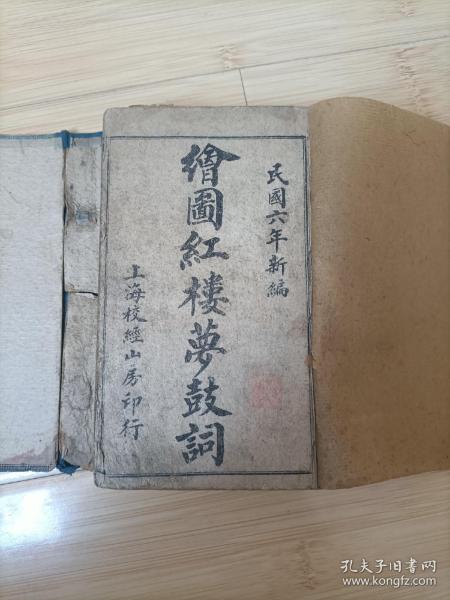 民國六年新編
繪圖紅樓夢鼓詞
上海校經山房印行
孔夫子旧书网
www.kongfz.com